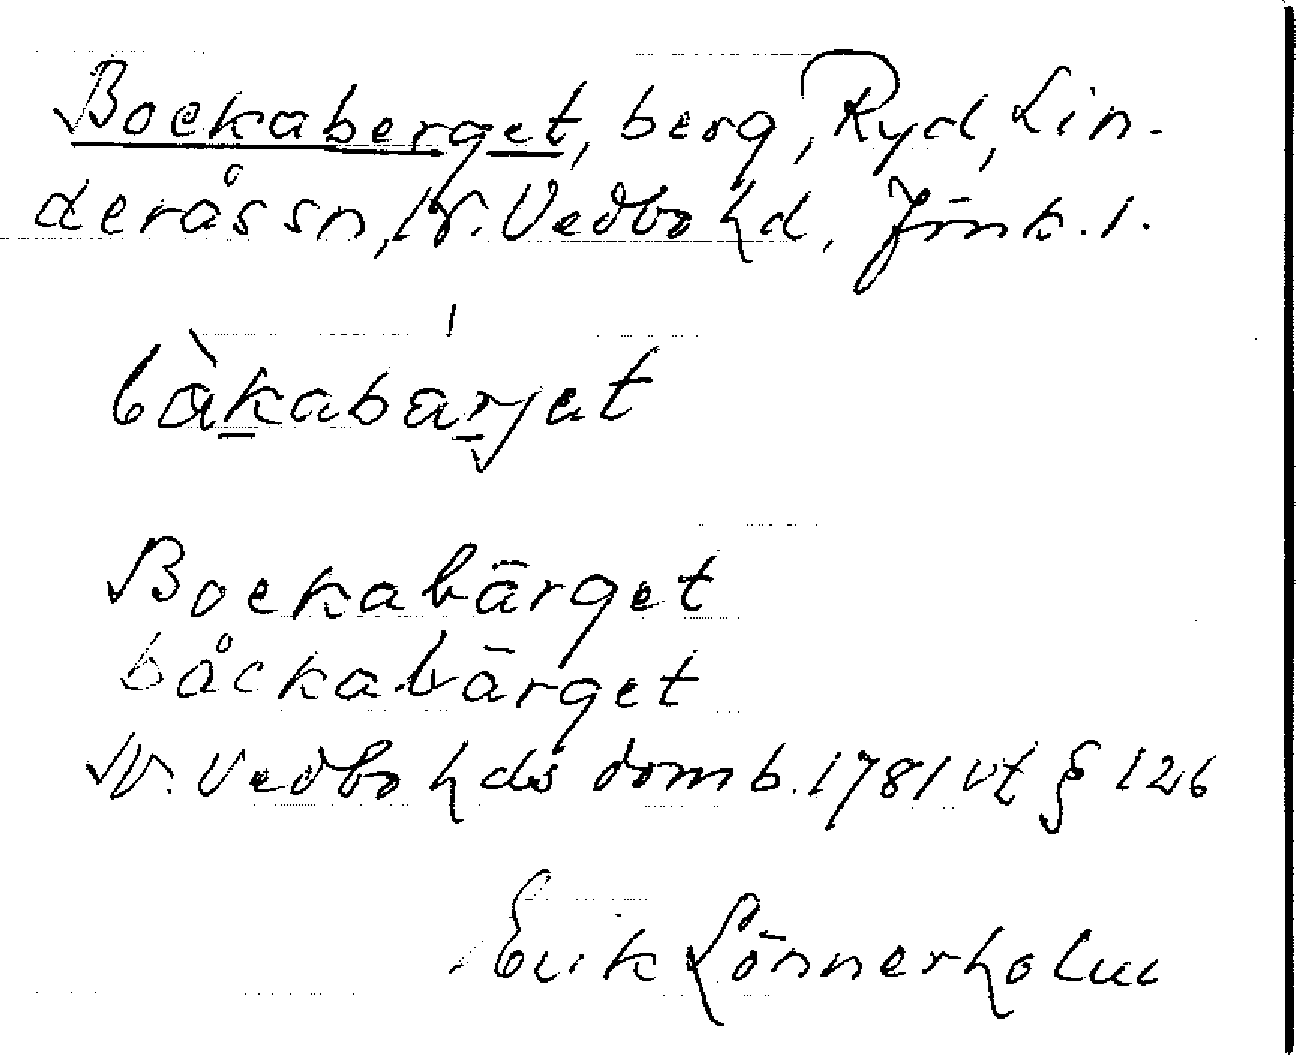 Bockaberget, berg, Ryd, Lin-
deråssn, N. Vedbo hd, Jönk. l.
bàkabárjet
Bockabärget
båckabärget
N. Vedbo hds domb. 1781 vt § 126
Erik Lönnerholm